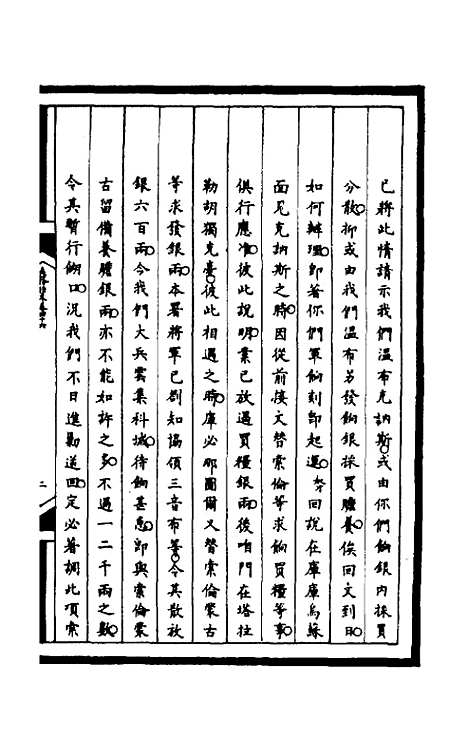 已將此情請示我們溫布克訥斯或由你們餉銀內採買
分散抑或由我們溫布另發餉銀採買贍養俟回文到日
如何辦理即著你們軍餉刻即起運等回說在庫庫烏蘇
面見克訥斯之時因從前接文替索倫等求餉買糧等事
俱行應准彼此說明業已放過買糧銀兩後咱門在塔拉
勒胡獨克臺彼此相遇之時庫必那圖爾又替索倫蒙古
等求發銀兩本署將軍已劄知協領三音布等令其散放
銀六百兩今我們大兵雲集科城待餉甚急即與索倫蒙
古留備養贍銀兩亦不能如許之多不過一二千兩之數
令其暫行餬口況我們不日進勦送回定必著調此項索
二